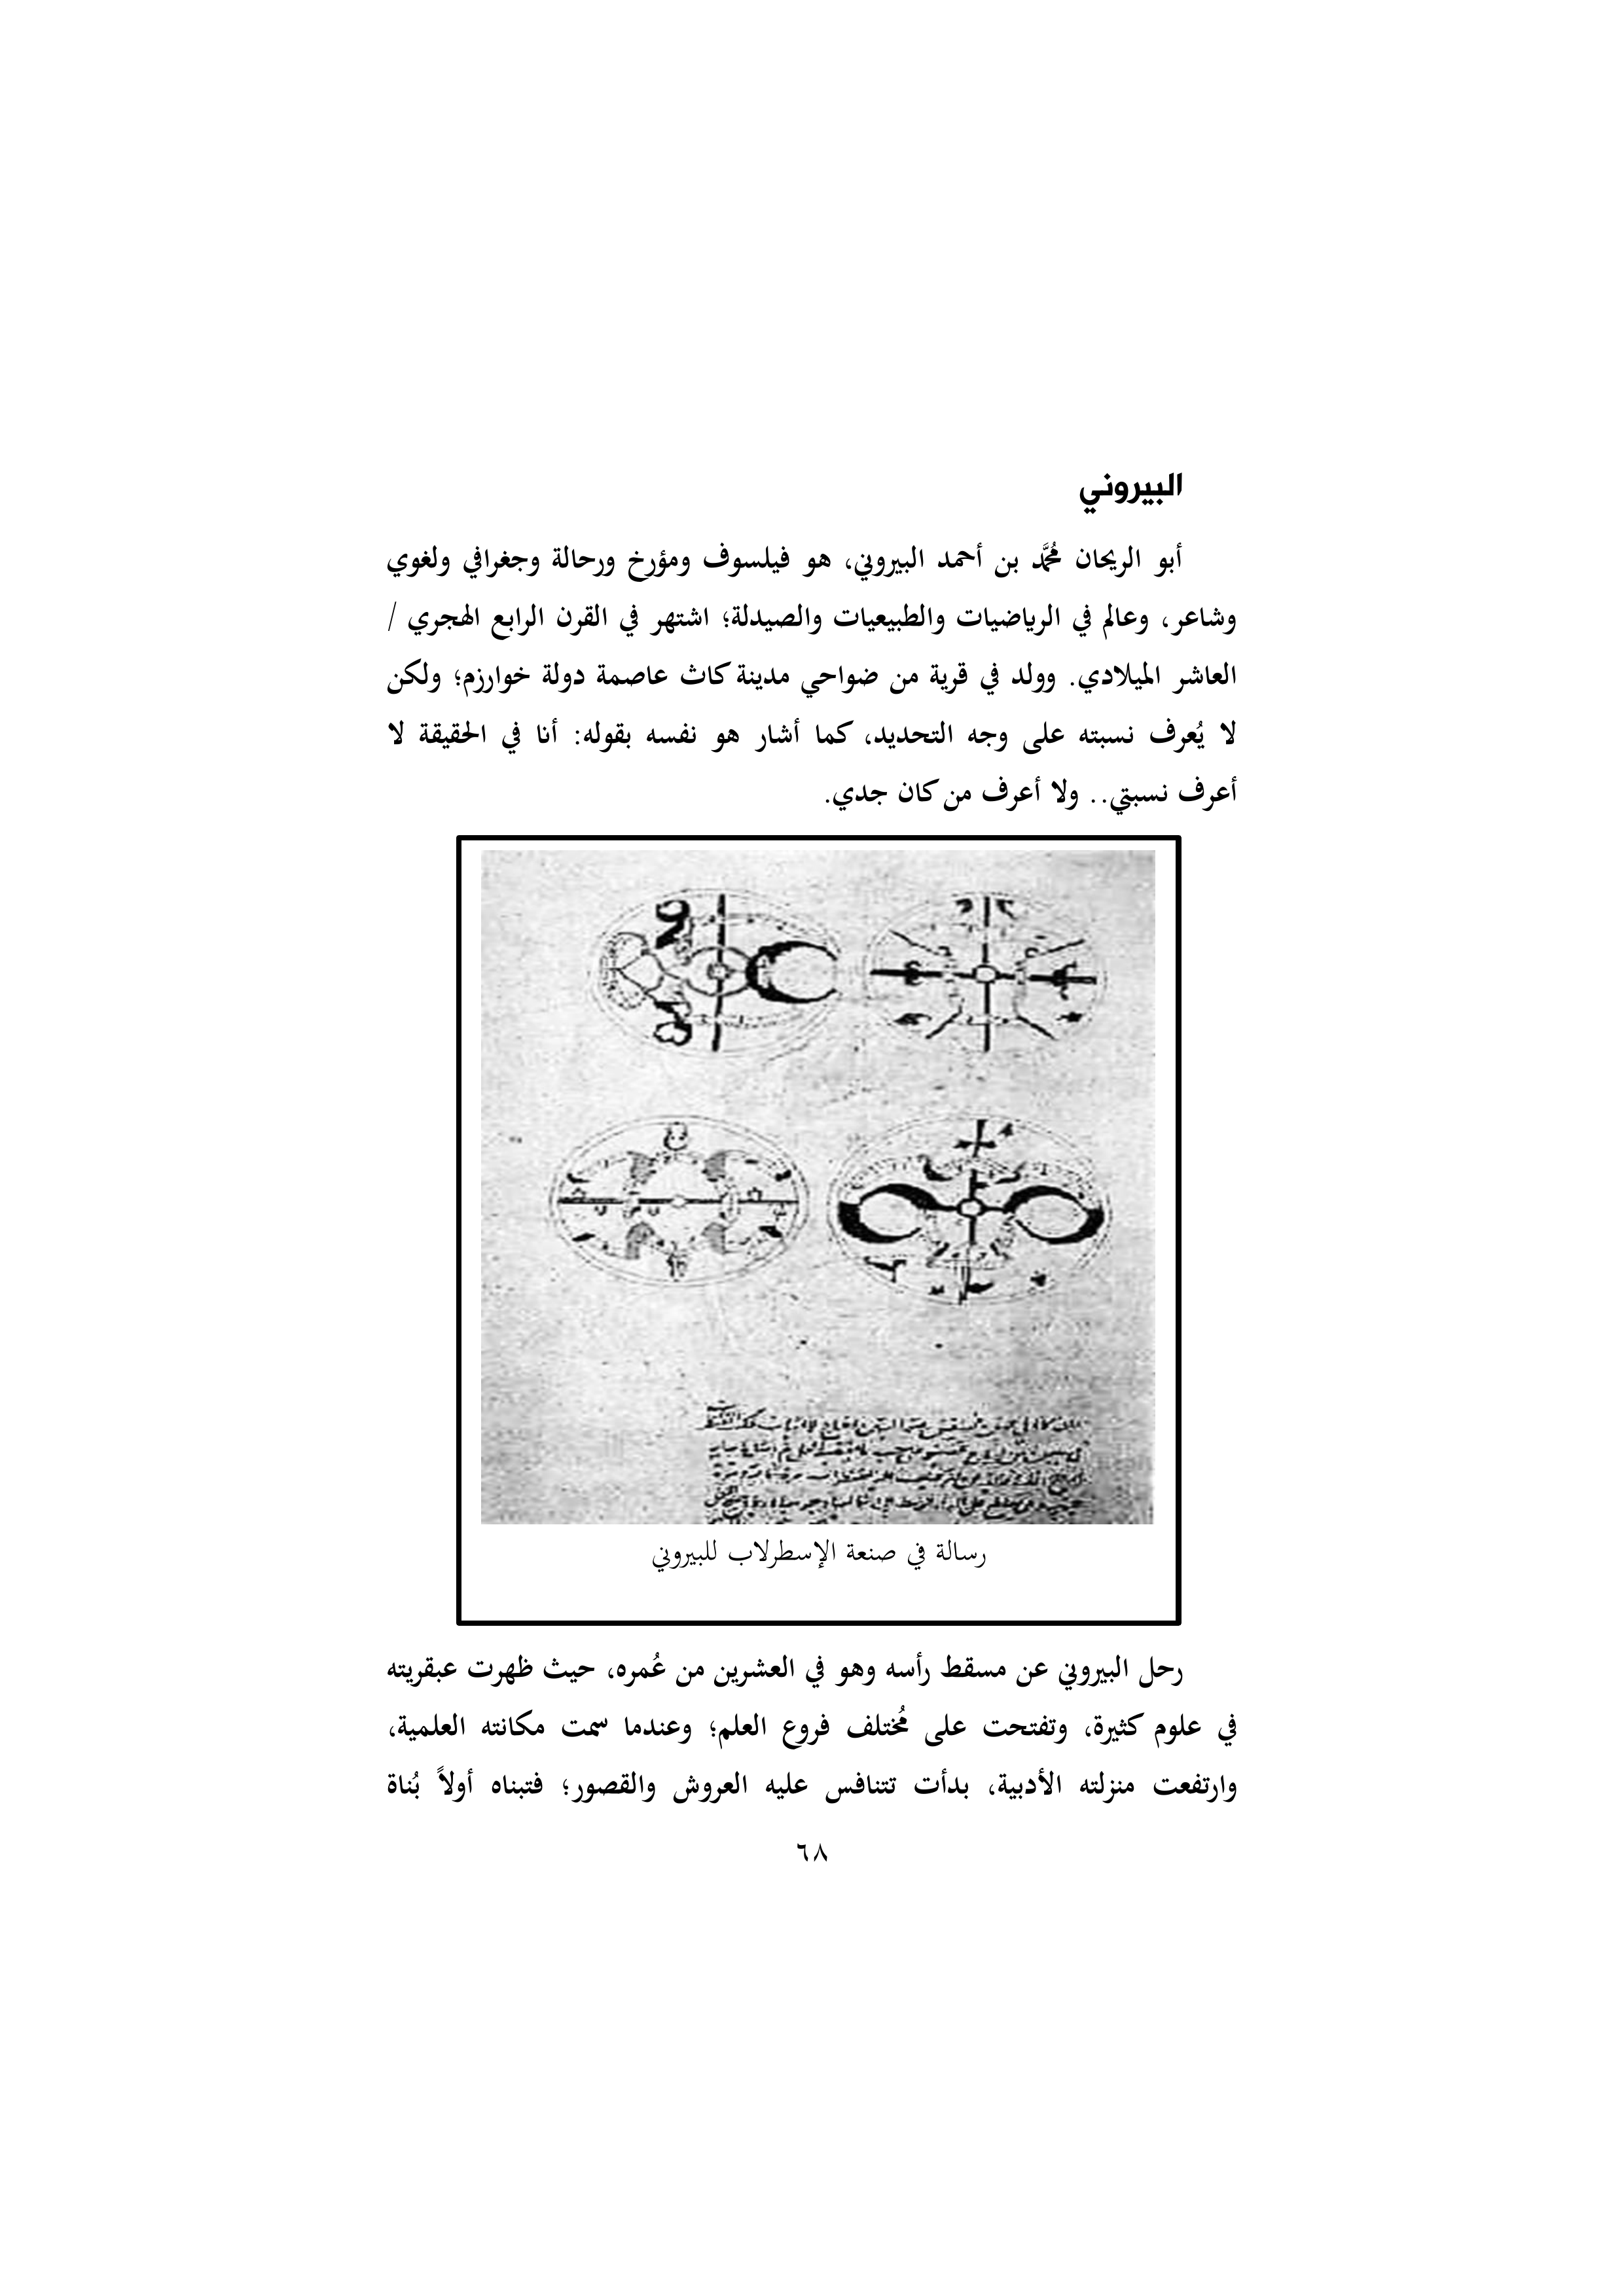 البيروني
أبو الريحان مُحَمَّد بن أحمد البيروني، هو فيلسوف ومؤرخ ورحالة وجغرافي ولغوي
وشاعر، وعالم في الرياضيات والطبيعيات والصيدلة؛ اشتهر في القرن الرابع الهجري /
العاشر الميلادي. وولد في قرية من ضواحي مدينة كاث عاصمة دولة خوارزم؛ ولكن
لا يُعرف نسبته على وجه التحديد، كما أشار هو نفسه بقوله: أنا في الحقيقة لا
أعرف نسبتي.. ولا أعرف من كان جدي.
رسالة في صنعة الإسطرلاب للبيروني
رحل البيروني عن مسقط رأسه وهو في العشرين من عُمره، حيث ظهرت عبقريته
في علوم كثيرة، وتفتحت على مُختلف فروع العلم؛ وعندما سمت مكانته العلمية،
وارتفعت منزلته الأدبية، بدأت تتنافس عليه العروش والقصور؛ فتبناه أولاً بُناة
٦٨